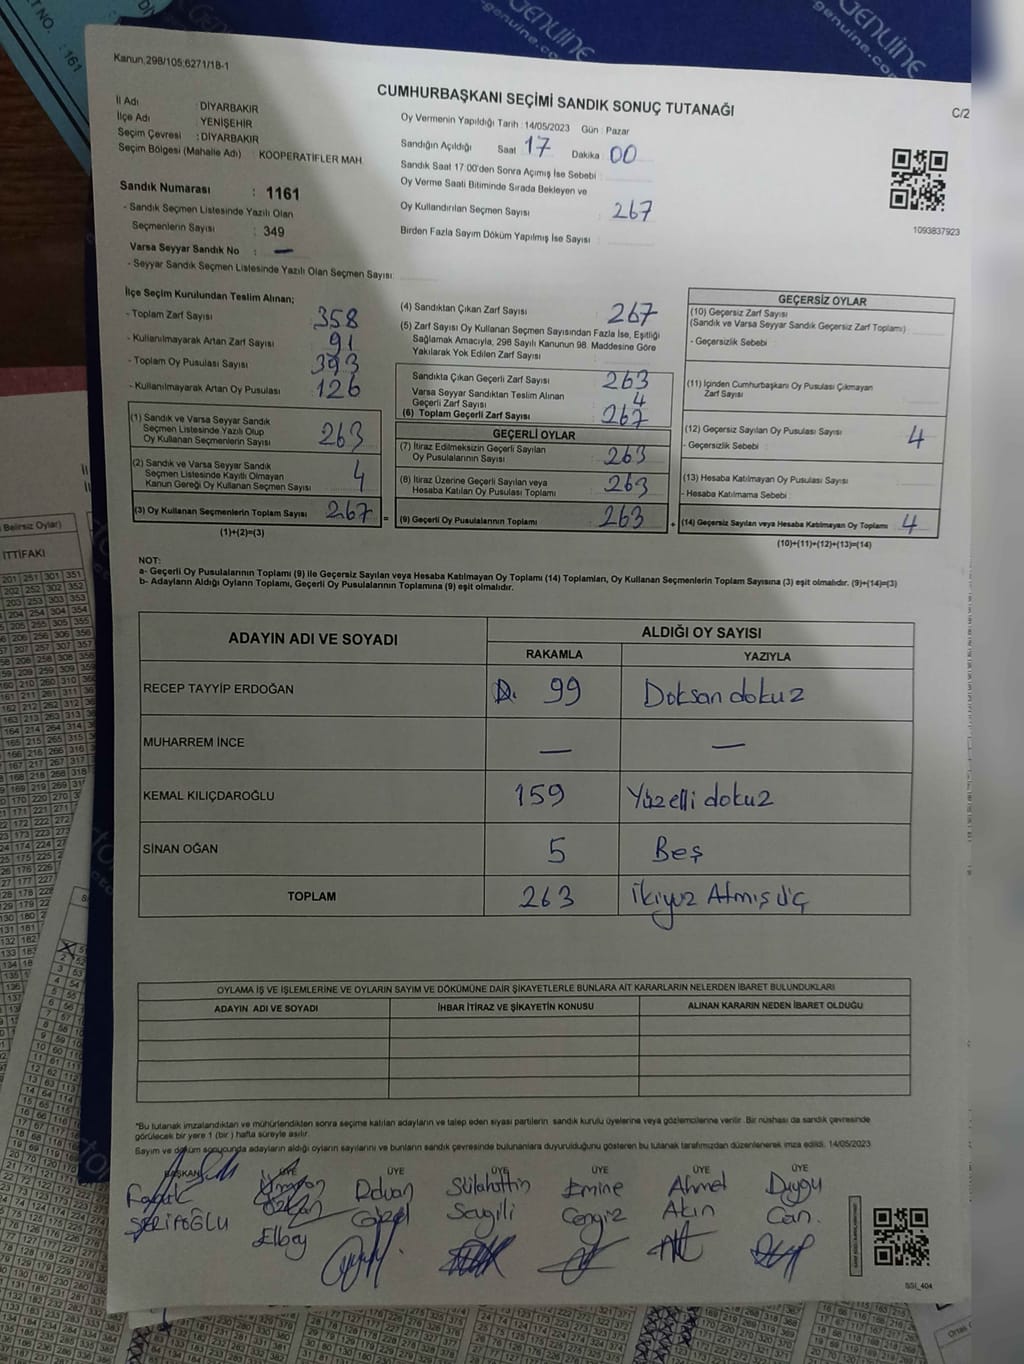 T NO. : 161
GENUINE
genuine.co
GENUINE
genuine.co
Kanun:298/105;6271/18-1
CUMHURBAŞKANI SEÇİMİ SANDIK SONUÇ TUTANAĞI
C/2
İl Adı : DİYARBAKIR
İlçe Adı : YENİŞEHİR
Seçim Çevresi : DİYARBAKIR
Seçim Bölgesi (Mahalle Adı) : KOOPERATİFLER MAH.
Oy Vermenin Yapıldığı Tarih : 14/05/2023 Gün : Pazar
Sandığın Açıldığı Saat 17 Dakika 00
Sandık Saat 17:00'den Sonra Açımış İse Sebebi :
Oy Verme Saati Bitiminde Sırada Bekleyen ve
Oy Kullandırılan Seçmen Sayısı 267
Birden Fazla Sayım Döküm Yapılmış İse Sayısı :
1093837923
Sandık Numarası : 1161
- Sandık Seçmen Listesinde Yazılı Olan
Seçmenlerin Sayısı : 349
Varsa Seyyar Sandık No : —
- Seyyar Sandık Seçmen Listesinde Yazılı Olan Seçmen Sayısı:
İlçe Seçim Kurulundan Teslim Alınan;
- Toplam Zarf Sayısı 358
- Kullanılmayarak Artan Zarf Sayısı 91
- Toplam Oy Pusulası Sayısı 393
- Kullanılmayarak Artan Oy Pusulası 126
(1) Sandık ve Varsa Seyyar Sandık
Seçmen Listesinde Yazılı Olup
Oy Kullanan Seçmenlerin Sayısı 263
(2) Sandık ve Varsa Seyyar Sandık
Seçmen Listesinde Kayıtlı Olmayan
Kanun Gereği Oy Kullanan Seçmen Sayısı 4
(3) Oy Kullanan Seçmenlerin Toplam Sayısı 267 =
(1)+(2)=(3)
(4) Sandıktan Çıkan Zarf Sayısı 267
(5) Zarf Sayısı Oy Kullanan Seçmen Sayısından Fazla İse, Eşitliği
Sağlamak Amacıyla, 298 Sayılı Kanunun 98. Maddesine Göre
Yakılarak Yok Edilen Zarf Sayısı :
Sandıkta Çıkan Geçerli Zarf Sayısı 263
Varsa Seyyar Sandıktan Teslim Alınan
Geçerli Zarf Sayısı 4
(6) Toplam Geçerli Zarf Sayısı 267
GEÇERLİ OYLAR
(7) İtiraz Edilmeksizin Geçerli Sayılan
Oy Pusulalarının Sayısı 263
(8) İtiraz Üzerine Geçerli Sayılan veya
Hesaba Katılan Oy Pusulası Toplamı 263
(9) Geçerli Oy Pusulalarının Toplamı 263 +
GEÇERSİZ OYLAR
(10) Geçersiz Zarf Sayısı
(Sandık ve Varsa Seyyar Sandık Geçersiz Zarf Toplamı)
- Geçersizlik Sebebi :
(11) İçinden Cumhurbaşkanı Oy Pusulası Çıkmayan
Zarf Sayısı
(12) Geçersiz Sayılan Oy Pusulası Sayısı 4
- Geçersizlik Sebebi :
(13) Hesaba Katılmayan Oy Pusulası Sayısı
- Hesaba Katılmama Sebebi :
(14) Geçersiz Sayılan veya Hesaba Katılmayan Oy Toplamı 4
(10)+(11)+(12)+(13)=(14)
NOT:
a- Geçerli Oy Pusulalarının Toplamı (9) ile Geçersiz Sayılan veya Hesaba Katılmayan Oy Toplamı (14) Toplamları, Oy Kullanan Seçmenlerin Toplam Sayısına (3) eşit olmalıdır. (9)+(14)=(3)
b- Adayların Aldığı Oyların Toplamı, Geçerli Oy Pusulalarının Toplamına (9) eşit olmalıdır.
ADAYIN ADI VE SOYADI
ALDIĞI OY SAYISI
RAKAMLA YAZIYLA
RECEP TAYYİP ERDOĞAN 99 Doksan dokuz
MUHARREM İNCE — —
KEMAL KILIÇDAROĞLU 159 Yüzelli dokuz
SİNAN OĞAN 5 Beş
TOPLAM 263 İkiyüz Atmış üç
OYLAMA İŞ VE İŞLEMLERİNE VE OYLARIN SAYIM VE DÖKÜMÜNE DAİR ŞİKAYETLERLE BUNLARA AİT KARARLARIN NELERDEN İBARET BULUNDUKLARI
ADAYIN ADI VE SOYADI İHBAR İTİRAZ VE ŞİKAYETİN KONUSU ALINAN KARARIN NEDEN İBARET OLDUĞU
*Bu tutanak imzalandıktan ve mühürlendikten sonra seçime katılan adayların ve talep eden siyasi partilerin sandık kurulu üyelerine veya gözlemcilerine verilir. Bir nüshası da sandık çevresinde
görülecek bir yere 1 (bir ) hafta süreyle asılır.
Sayım ve döküm sonucunda adayların aldığı oyların sayılarını ve bunların sandık çevresinde bulunanlara duyurulduğunu gösteren bu tutanak tarafımızdan düzenlenerek imza edildi. 14/05/2023
BAŞKAN ÜYE ÜYE ÜYE ÜYE ÜYE ÜYE
Faruk ŞERİFOĞLU
Elbey
Güzel
Sülahattin Sevgili
Emine Cengiz
Ahmet Akın
Duygu Can.
SSİ_404
Belirsiz Oylar)
İTTİFAKI